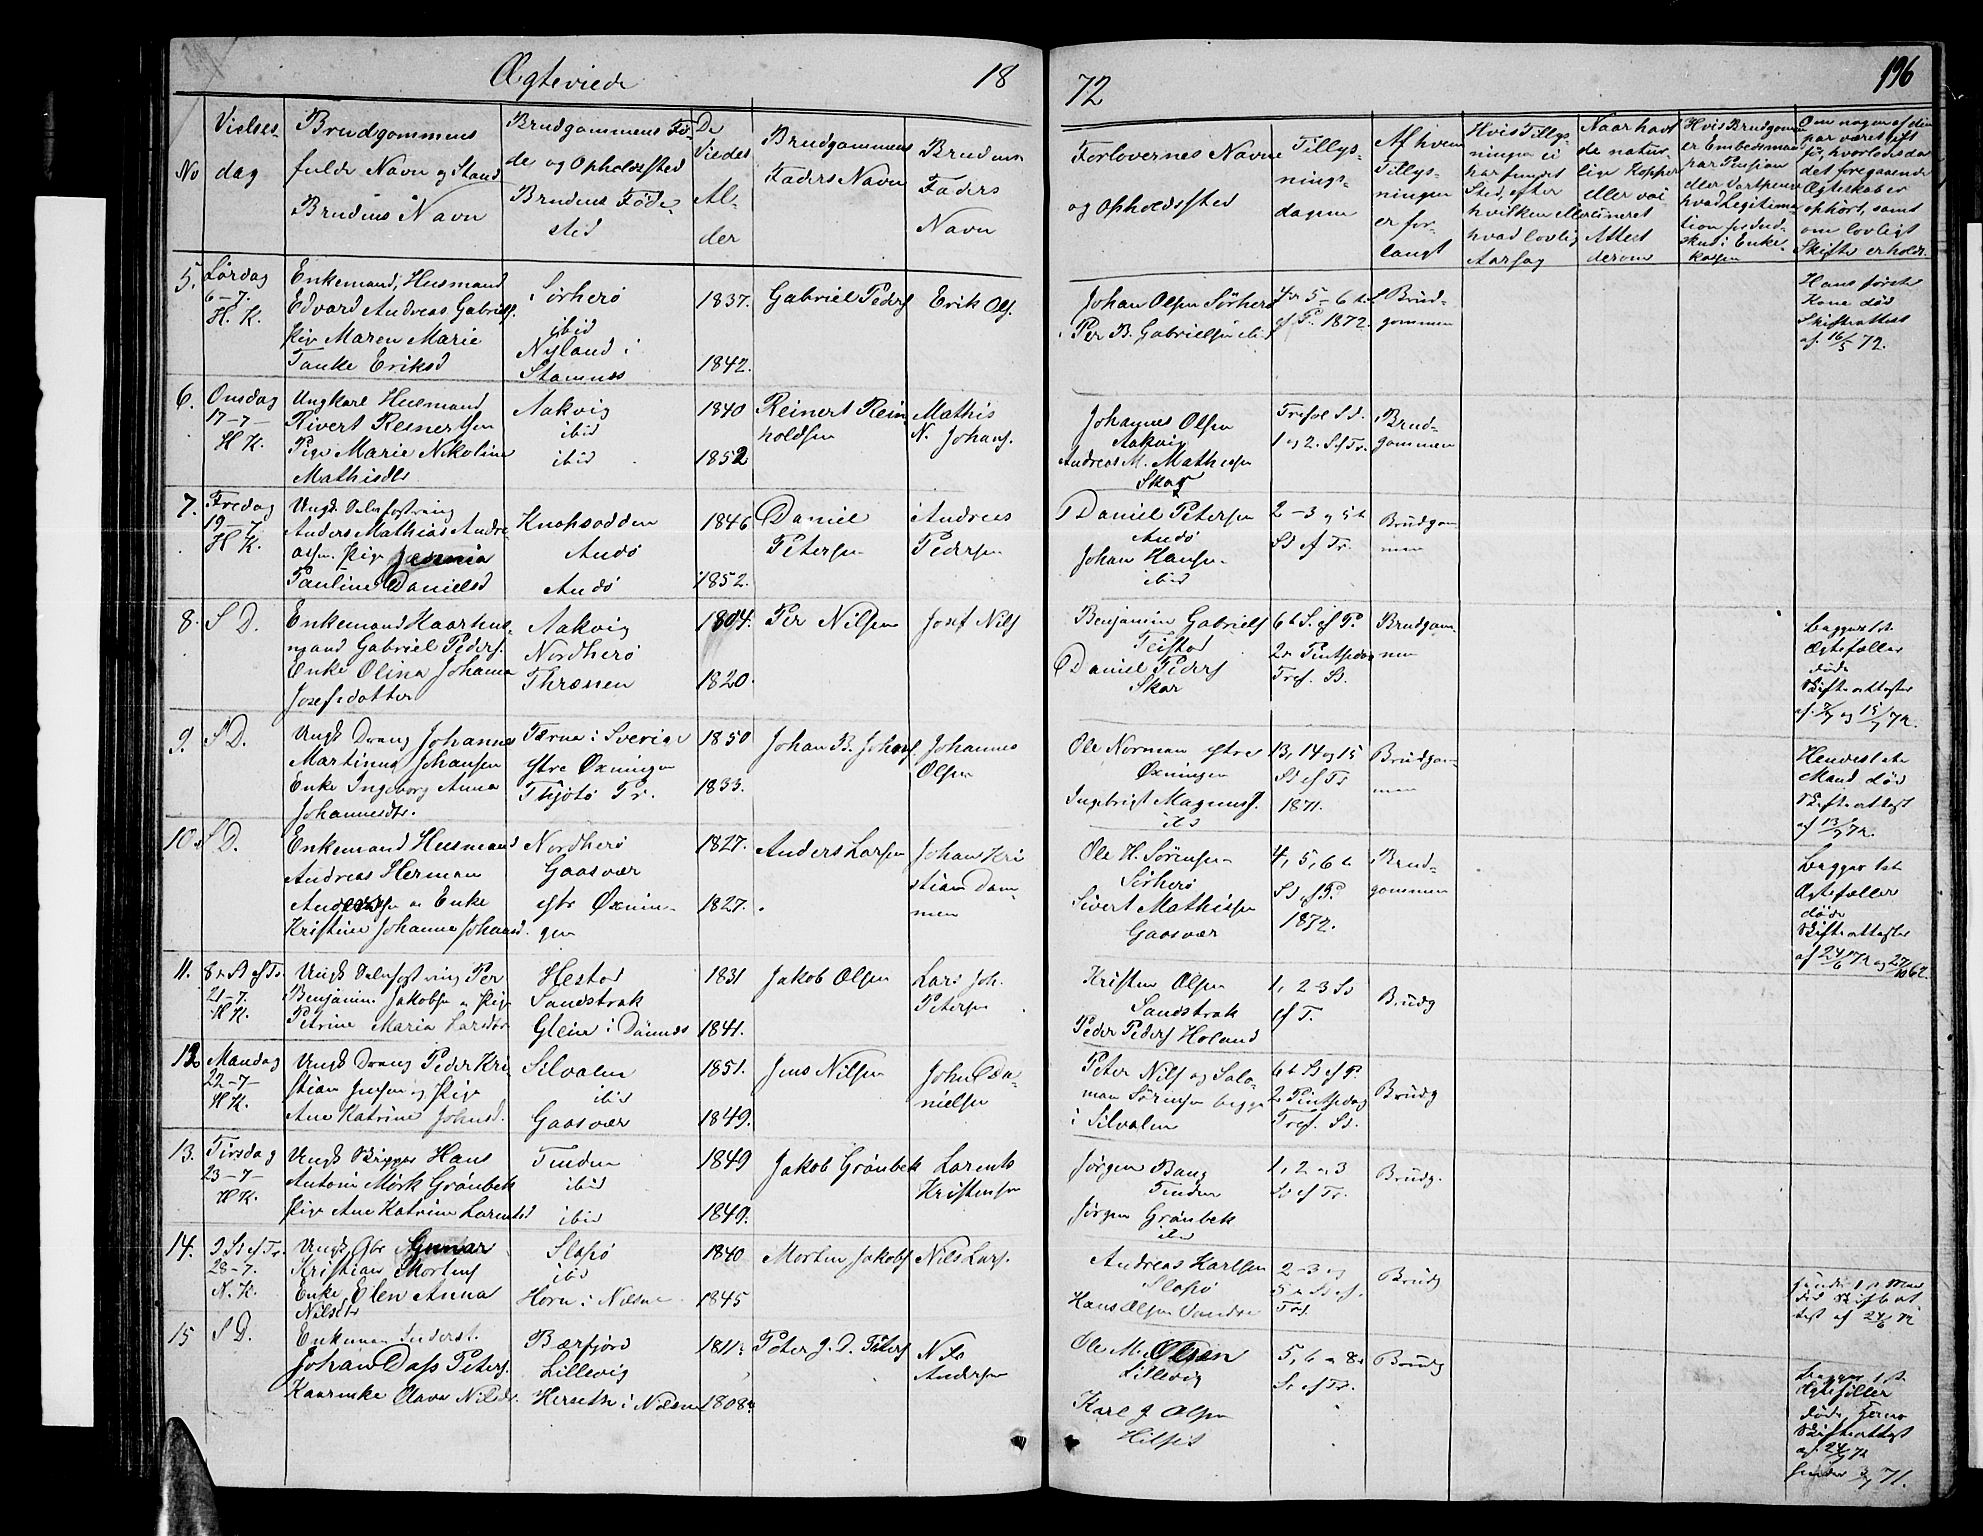 Ægteviede 18
72
196
No
Vielses-
dag
Brudgommens
fulde Navn og Stand
Brudens Navn
Brudgommens Fø-
de og Opholdssted
Brudens Føde-
sted
De
Viedes
Al-
der
Brudgommens
Faders Navn
Brudens
Faders
Navn
Forlovernes Navne
og Opholdssted
Tillys-
nings-
dagene
Af hvem
Tillys-
ningen
er for-
langt
Hvis Tillys-
ningen ei
har fundet
Sted, efter
hvilken eller
hvad lovlig
Aarsag
Naar havt
de natur-
lige Kopper
eller vac-
cineret
Attest
derom
Hvis Brudgommen
er Embedsmand
hvad Legitima-
tion for Ind-
skud i Enke-
kassen
Om nogen af dem
har været gift
før, hvorledes da
det foregaaende
Ægteskab er
ophørt, samt
om lovligt
Skifte er holdt.
5.
Lørdag
6-7.
H. K.
Enkemand, Husmand
Edvard Andreas Gabriels.
Pige Maren Marie
Tanke Eriksd
Sørherø
ibid
Nyland i
Stamnes
1837.
1842.
Gabriel Peders
Erik Ols.
Johan Olsen Sørherø
Per B. Gabrielsen ibid
4de 5- 6te S
ef P. 1872.
Brud-
gommen
Hans første
Kone død
Skifteattest
af 16/5 72.
6.
Onsdag
17-7-
H K.
Ungkarl Husmand
Sivert Reinertsen
Pige Marie Nikoline
Mathisdtr
Aakvig
ibid
ibid
1840
1852
Reinert Rein
holdsen
Mathis
N. Johans.
Johannes Olsen
Aakvig
Andreas M. Mathisen
Skar
Tref. Sd.
1 og 2. S ef Tr.
Brud-
gommen
7.
Fredag
19-7.
H K.
Anders Mathias Andre
assen. Pige
Pauline Danielsd
Andø
Andø
1846
1852.
Daniel
Petersen
Andreas
Pedersen
Daniel Petersen
Andø
Johan Hansen
ibid
2-3 og 5te
Sd ef Tr.
Brudgom-
men
8.
S D.
Enkemand Kaarhus-
mand Gabriel Peders.
Enke Olina Johanna
Josefsdatter
Aakvig
Nordherø
Thrænen
1804.
1820.
Per Nilsen
Josef Nils
Benjamin Gabriels
Teistod
Daniel Peders
Skar
6te S. ef P.
2den Pintsedag
Tref. S.
Brudgom-
men
begges 1ste
Ægtefæller
døde
Skifteattester
9.
S D.
Ungk Dreng Johannes
Martinus Johansen
Enke Ingeborg Anna
Johannesdtr.
Tærna i Sverige
Østre Øxningen
Thjøtø Pr.
1850
1833.
Johan B. Johans
Johannes
Olsen
Ole Norman østre
Øxningen
Ingebrigt Magnus.
ibid
13, 14 og 15
Sd ef Tr
1871.
Brudgom-
men
Hendes 1ste
Mand død
Skifteattest
10.
S D.
Enkemand Husmand
Andreas Herman
Andersen og Enke
Kristine Johanna Johansd.
Nordherø
Gaasvær
østr Øxnin-
gen
1827.
1827.
Anders Larsen
Johan Kri
stian Dam
men
Ole H. Sørensen
Sørherø
Sivert Mathisen
Gaasvær
4, 5, 6te
Sd ef P.
1872.
Brud-
gommen
begges 1ste
Ægtefæller
døde
Skifteattester
11.
8de S ef Tr.
21-7.
H K.
Benjamin Jakobsen og Pige
Petrine Maria Larsdtr
Hestad
Sandstrak
Glein i Dønnes
1831
1841.
Jakob Olsen
Lars Joh.
Petersen
Kristen Olsen
Sandstrak
Peder Peders Holand
1, 2-3 S
ef T.
Brudg
12.
Mandag
22-7-
H K.
Ungk Dreng Peder Kri
stian Jensen og Pige
Ane Katrine Johnsd.
Silvalen
ibid
Gaasvær
1851.
1849.
Jens Nilsen
John Da-
nielsen
Peter Nils og Salo-
mon Sørensen begge
i Silvalen
6te S ef P.
2 Pintsedag
Tref. Sd.
Brudg
13.
Tirsdag
23-7-
H K.
Ungk Skipper Hans
Antoni Mørk Grønbek
Pige Ane Katrine Lorentsd
Tinden
ibid
ibid
1849
1849.
Jakob Grønbek
Lorents
Kristensen
Jørgen Bang
Tinden
Jørgen Grønbek
ibid
1, 2 og 3
S ef Tr.
Brudg.
14.
9 S ef Tr.
28-7.
N. K.
Ungk Gbr Gunnar
Kristian Mortens
Enke Elen Anna
Nilsdtr
Slapø
ibid
Horn i Nælsne
1840
1845
Morten Jakobs
Nils Lars.
Andreas Karlsen
Slapø
Hans Olsen
2-3 og
Tr.
Brudg
15
S D.
Johan Dass Peters.
Nilsd.
Bærfjord
Lillevig
1811.
1808.
Peter J. D. Peters
Nils
Andersen
Ole M. Olsen
Lillevig
Karl J Olsen
5, 6 og 8de
S ef Tr.
Brudg
begges 1ste
Ægtefæller
døde
Skifteattest